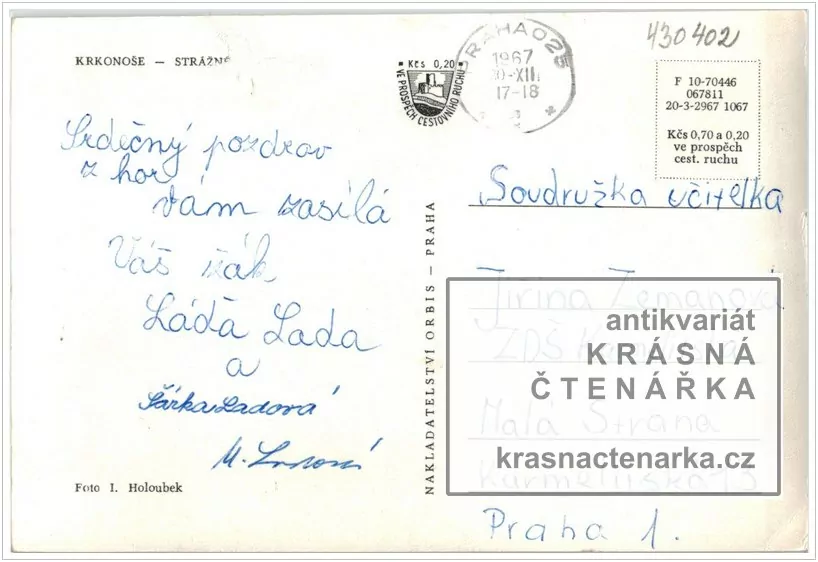 KRKONOŠE — STRÁŽNÉ
Kčs 0,20
VE PROSPĚCH CESTOVNÍHO RUCHU
PRAHA 025
1967
-XII
17-18
430402
F 10-70446
067811
20-3-2967 1067
Kčs 0,70 a 0,20
ve prospěch
cest. ruchu
Srdečný pozdrav
z hor
vám zasílá
Váš žák
Láďa Lada
a
Šárka Ladová
M. Ladová
Foto I. Holoubek
NAKLADATELSTVÍ ORBIS — PRAHA
Soudružka učitelka
Jiřina Zemanová
ZDŠ
Malá Strana
Karmelitská 13
Praha 1.
antikvariát
KRÁSNÁ
ČTENÁŘKA
krasnactenarka.cz